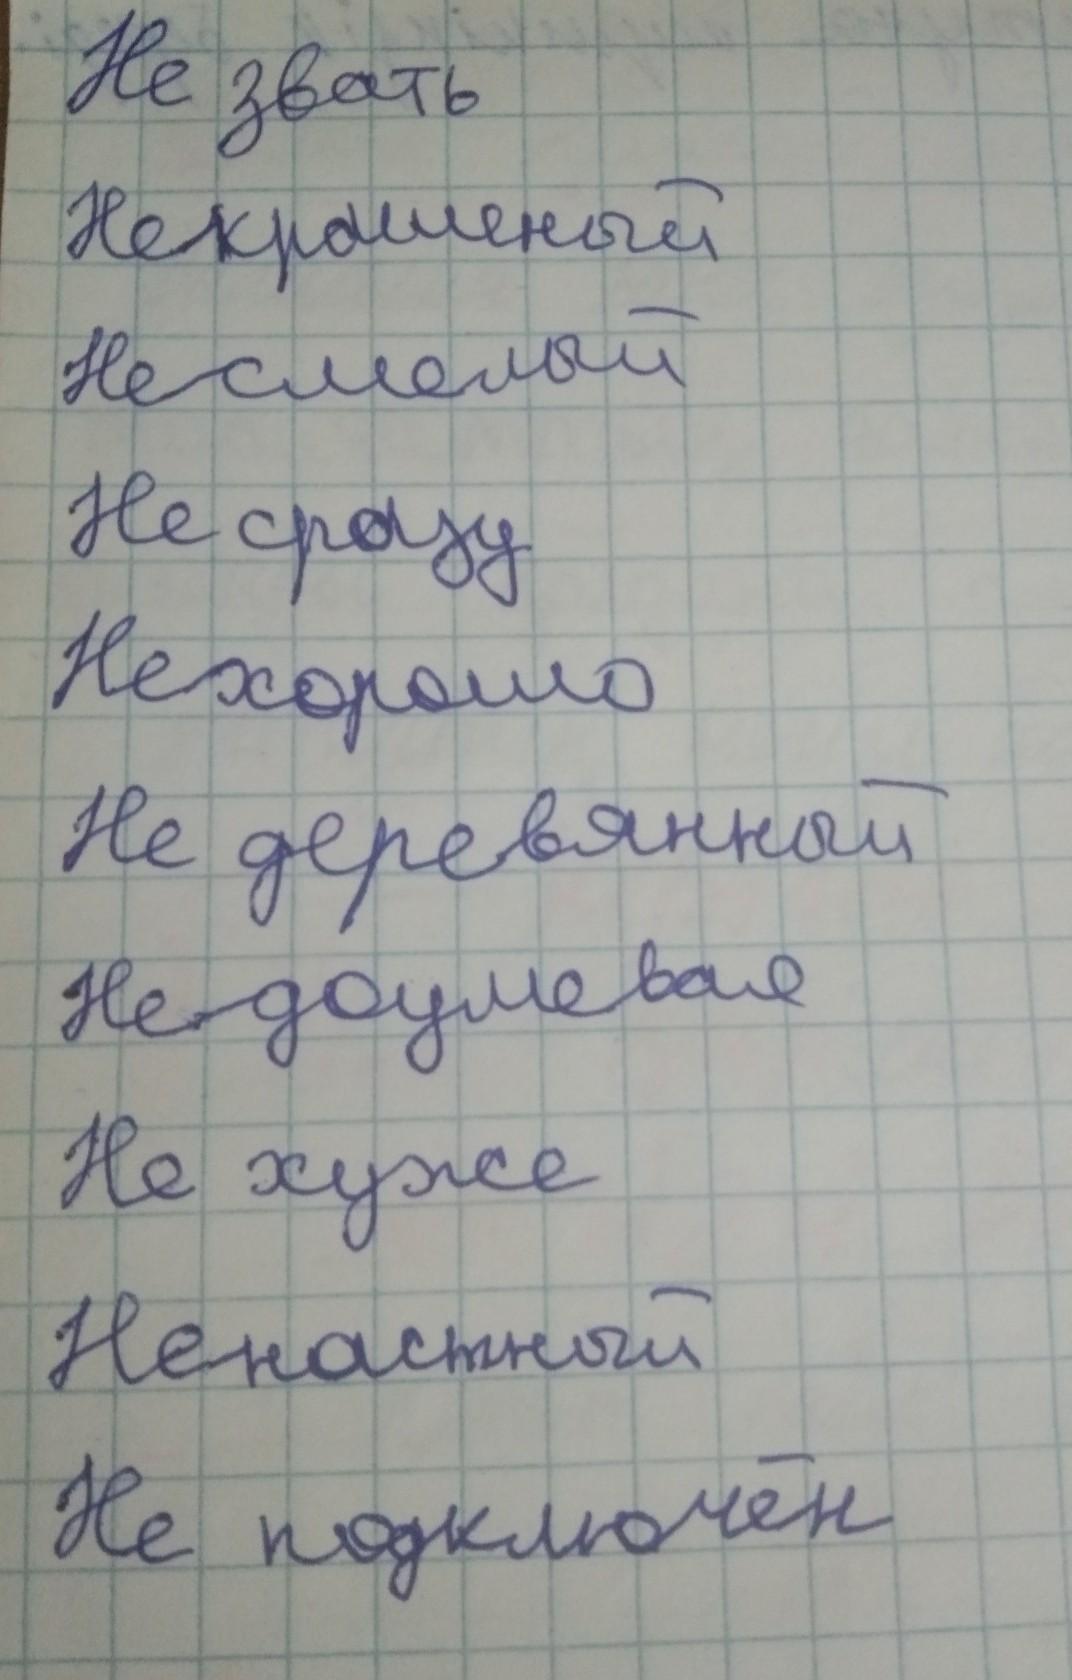 Не звать
Некрашеный
Несмелый
Не сразу
Нехорошо
Не деревянный
Недоумевая
Не хуже
Ненастный
Не подключён